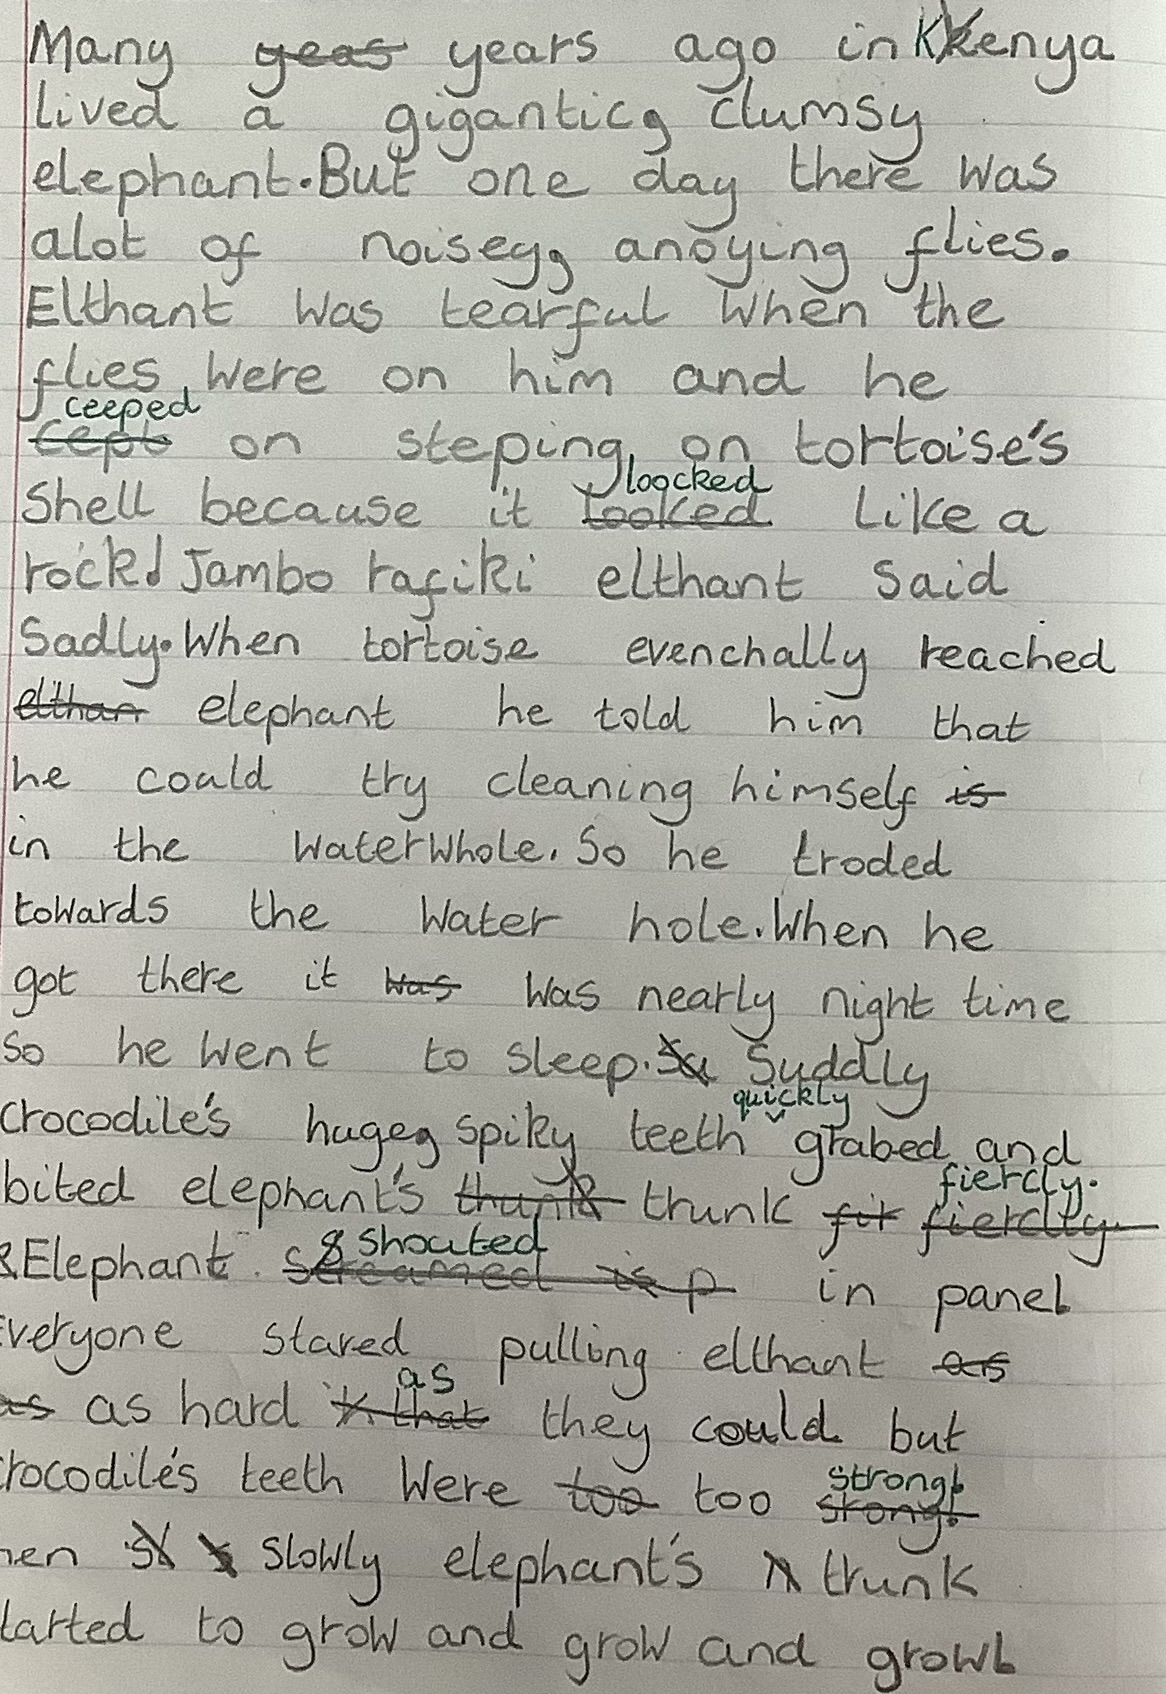 Many ~~yeas~~ years ago in Kenya
lived a gigantic, clumsy
elephant. But one day there was
alot of noisey, anoying flies.
Elthant was tearful when the
flies were on him and he
~~cept~~ ceeped on steping on tortoise's
shell because it ~~looked~~ loocked like a
rock! Jambo rafiki elthant said
sadly. When tortoise evenchally reached
~~elthan~~ elephant he told him that
he could try cleaning himself ~~is~~
in the waterwhole. So he troded
towards the water hole. When he
got there it ~~was~~ was nearly night time
so he went to sleep. ~~Su~~ Suddly
crocodile's huge, spiky teeth quickly grabed and
bited elephant's ~~thunk~~ trunk ~~fir~~ ~~fierclly.~~ fiercly.
Elephant ~~screamed is p~~ shouted in pane!
Everyone stared pulling elthant ~~as~~
~~as~~ as hard ~~that~~ as they could but
crocodile's teeth were ~~too~~ too ~~strong!~~ strong!
hen slowly elephant's trunk
tarted to grow and grow and grow!